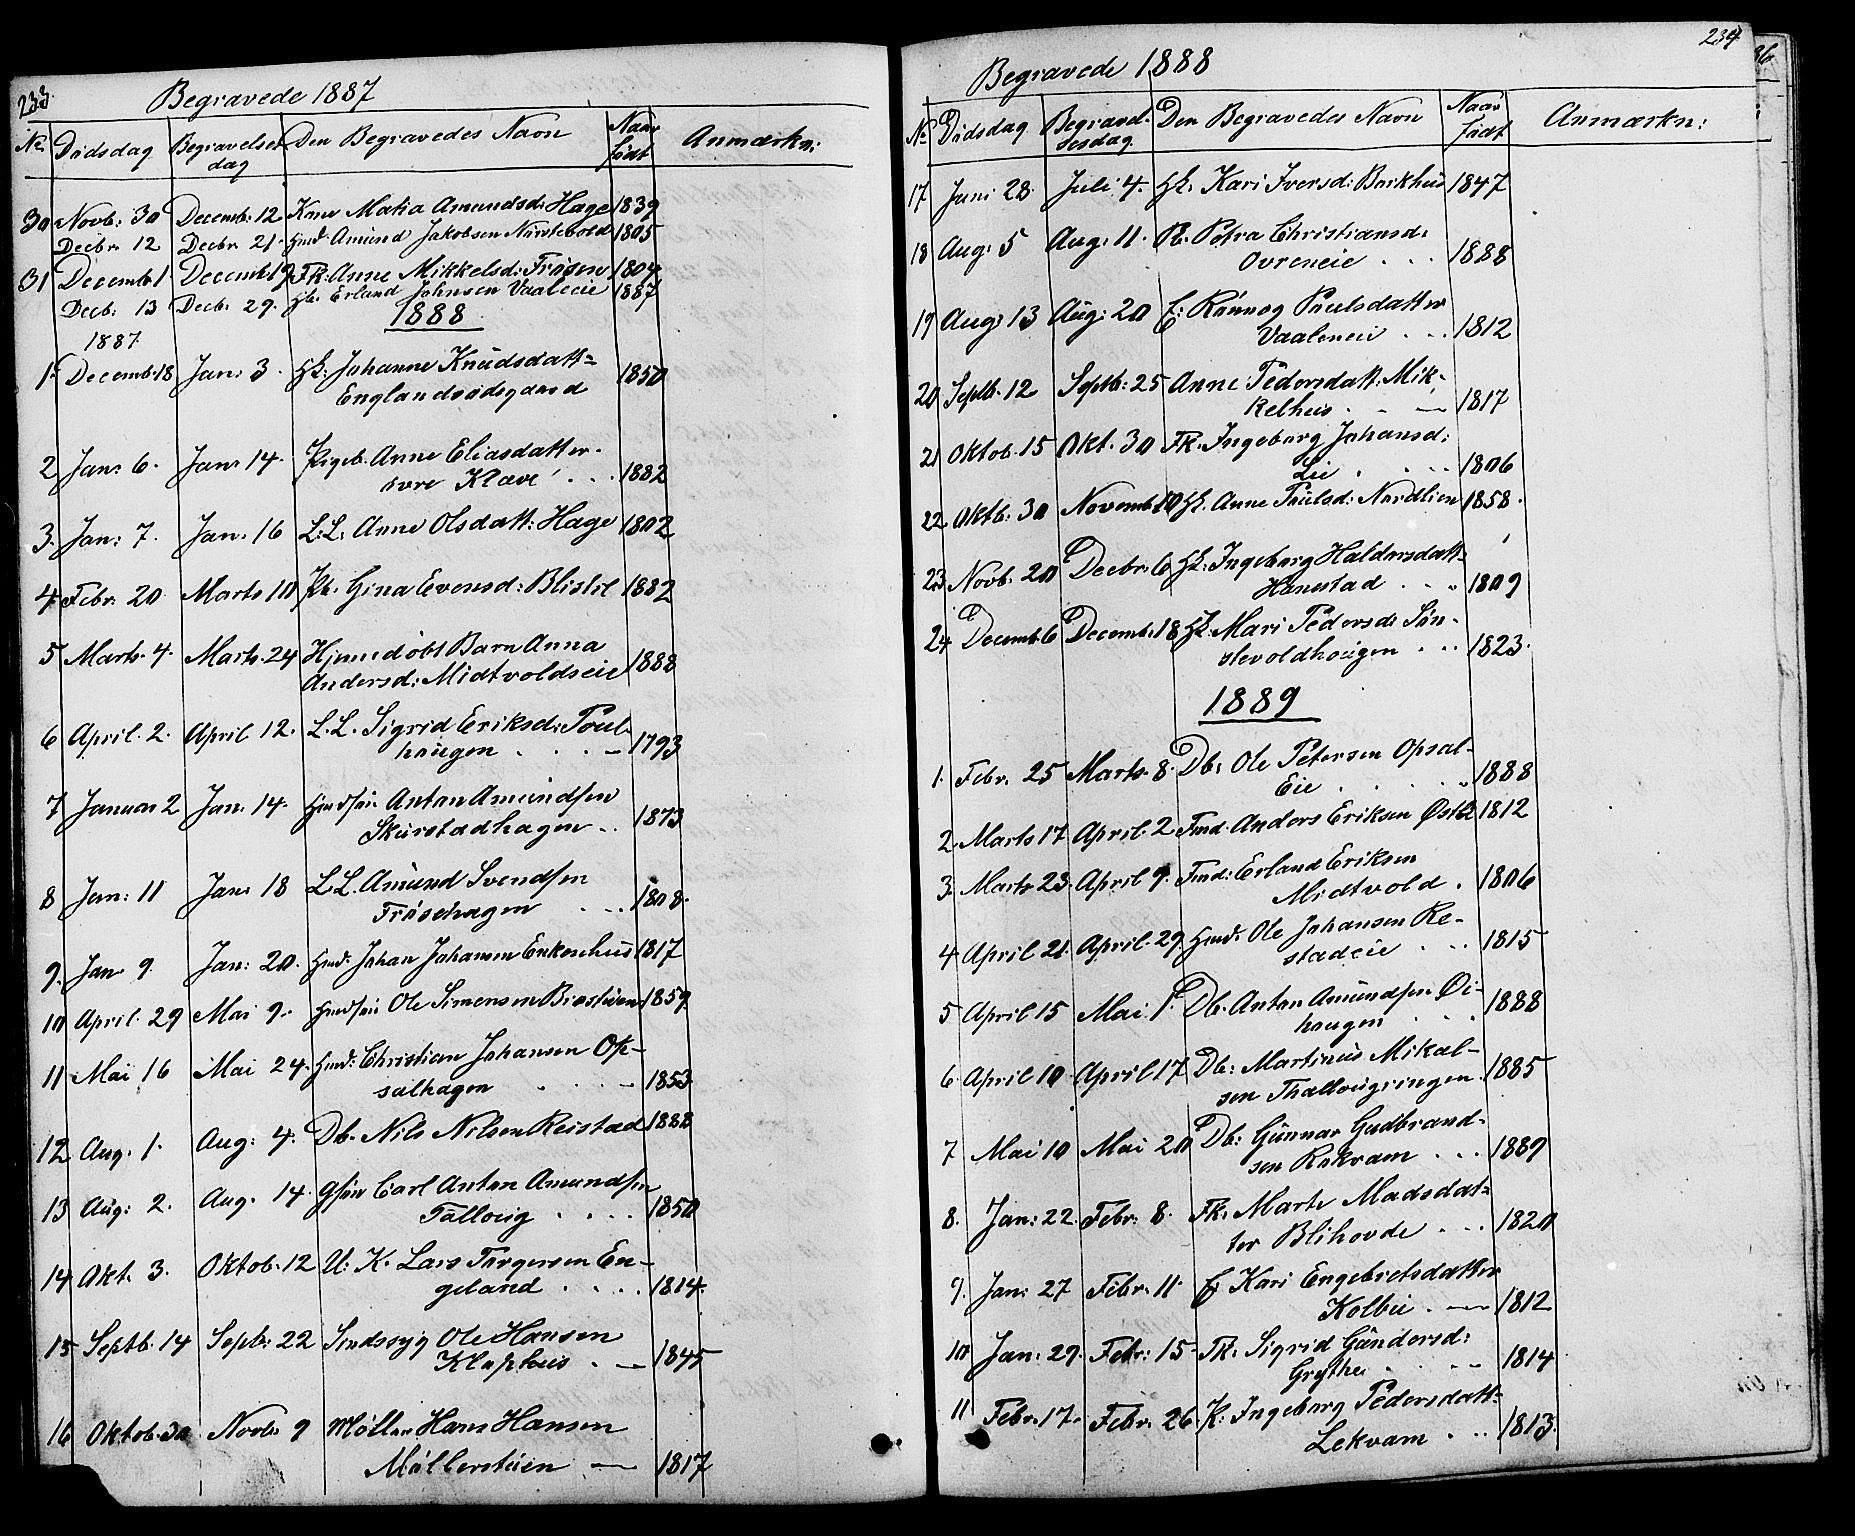 233.
Begravede 1887
No Dødsdag Begravelses dag Den Begravedes Navn Naar født Anmærkn:
30 Novb: 30 Decemb: 12 Kone Mathia Amundsd: Hage 1839
Decbr. 12 Decbr. 21. Gmd. Amund Jakobsen Nørstebold 1805
31 Decemb 1 Decemb 19 Fk: Anne Mikkelsd: Frøsen 1804
Decb. 13 Decb. 29. Gb. Erland Johnsen Vaaleeie 1887
1888
1887
1. Decemb. 18 Jan: 3. Gk: Johanne Knudsdatt=
Englandsødegaard 1850
2 Jan: 6. Jan: 14. Pigeb. Anne Eliasdatter
øvre Klæve . . . 1882
3. Jan: 7. Jan. 16 L: L: Anne Olsdatt: Hage 1802
4 Febr. 20. Marts 10 Pb. Gina Evensd: Blistel 1882
5 Marts. 4. Marts. 24 Hjemmedøbt Barn Anna
Andersd: Midtvoldseie 1888
6 April. 2. April 12. L. L. Sigrid Eriksd: Poul-
haugen . . . 1793
7 Januar 2 Jan. 14. Gmdsøn Anton Amundsen
Skurstadhagen . . 1873
8 Jan: 11 Jan: 18 L. L. Amund Svendsen
Frøsehagen . . . 1808.
9. Jan. 9. Jan: 20. Gmd. Johan Johansen Enkenhus 1817
10 April. 29 Mai 9. Gmdsøn Ole Simensen Bræstuen 1859
11 Mai 16 Mai 24. Gmd: Christian Johansen Op-
salhagen . . . 1853
12 Aug. 1. Aug: 4. Db. Nils Nilsen Reistad 1888
13 Aug: 2. Aug. 14. Gsøn Carl Anton Amundsen
Talloug . . . . 1850
14 Okt. 3. Oktob. 12 U: K. Lars Torgersen En-
geland . . . . 1814.
15 Septb. 14 Sepb: 22 Sindssyg Ole Hansen
Klaphus . — 1845
16 Oktob. 30 Novb: 9 Møller Hans Hansen
Møllerstuen — 1817
234.
Begravede 1888
No Dødsdag Begravel- sesdag Den Begravedes Navn Naar født Anmærkn:
17 Juni 28. Juli 4. Gk. Kari Iversd: Barkhus 1847
18 Aug: 5 Aug: 11. Pb. Petra Christiansd:
Øvreneie . . . 1888
19 Aug: 13 Aug: 20 E: Rønnog Paulsdatter
Vaaleneie . . . 1812
20 Septb. 12 Septb: 25 Anne Pedersdatt: Mik-
kelhus . . — 1817
21 Oktob. 15 Okt. 30 Fk. Ingeborg Johansd:
Lie . . . . 1806
22 Oktb: 30 Novemb. 10 Gk. Anne Paulsd: Nordlien 1858.
23 Novb. 20 Decbr. 6 Gk: Ingeborg Haldorsdatt=
Hanestad . . . 1809
24 Decemb 6 Decemb. 18 Gk. Mari Pedersd: Søn-
stevoldhougen . . . 1823.
1889
1. Febr. 25 Marts. 8. Db: Ole Petersen Opsal-
Eie . . . . 1888
2. Marts 17 April. 2 Fmd. Anders Eriksen Østbø 1812
3. Marts 23. April 9. Fmd: Erland Eriksen
Midtvold . 1806
4 April 21. April. 29 Gmd. Ole Johansen Re-
stadeie . . . 1815
5 April 15 Mai 1. Db. Anton Amundsen Øi-
haugen . . . 1888
6. April 10 April 17 Db: Martinus Mikal-
sen Thallougringen. 1885
7 Mai 10 Mai 20 Db: Gunnar Gudbrand-
sen Rakvam . . . 1889
8. Jan: 22. Febr: 8. Fk: Marte Madsdat=
ter Blihovde . . . 1820
9. Jan: 27 Febr: 11. E Kari Engebretsdatter
Kolbu . — 1812
10 Jan: 29. Febr: 15. Fk. Sigrid Gundersd:
Grythe . . . . 1814
11 Febr. 17. Febr. 26. K: Ingeborg Pedersdatt:
Lekvam . . . 1813.